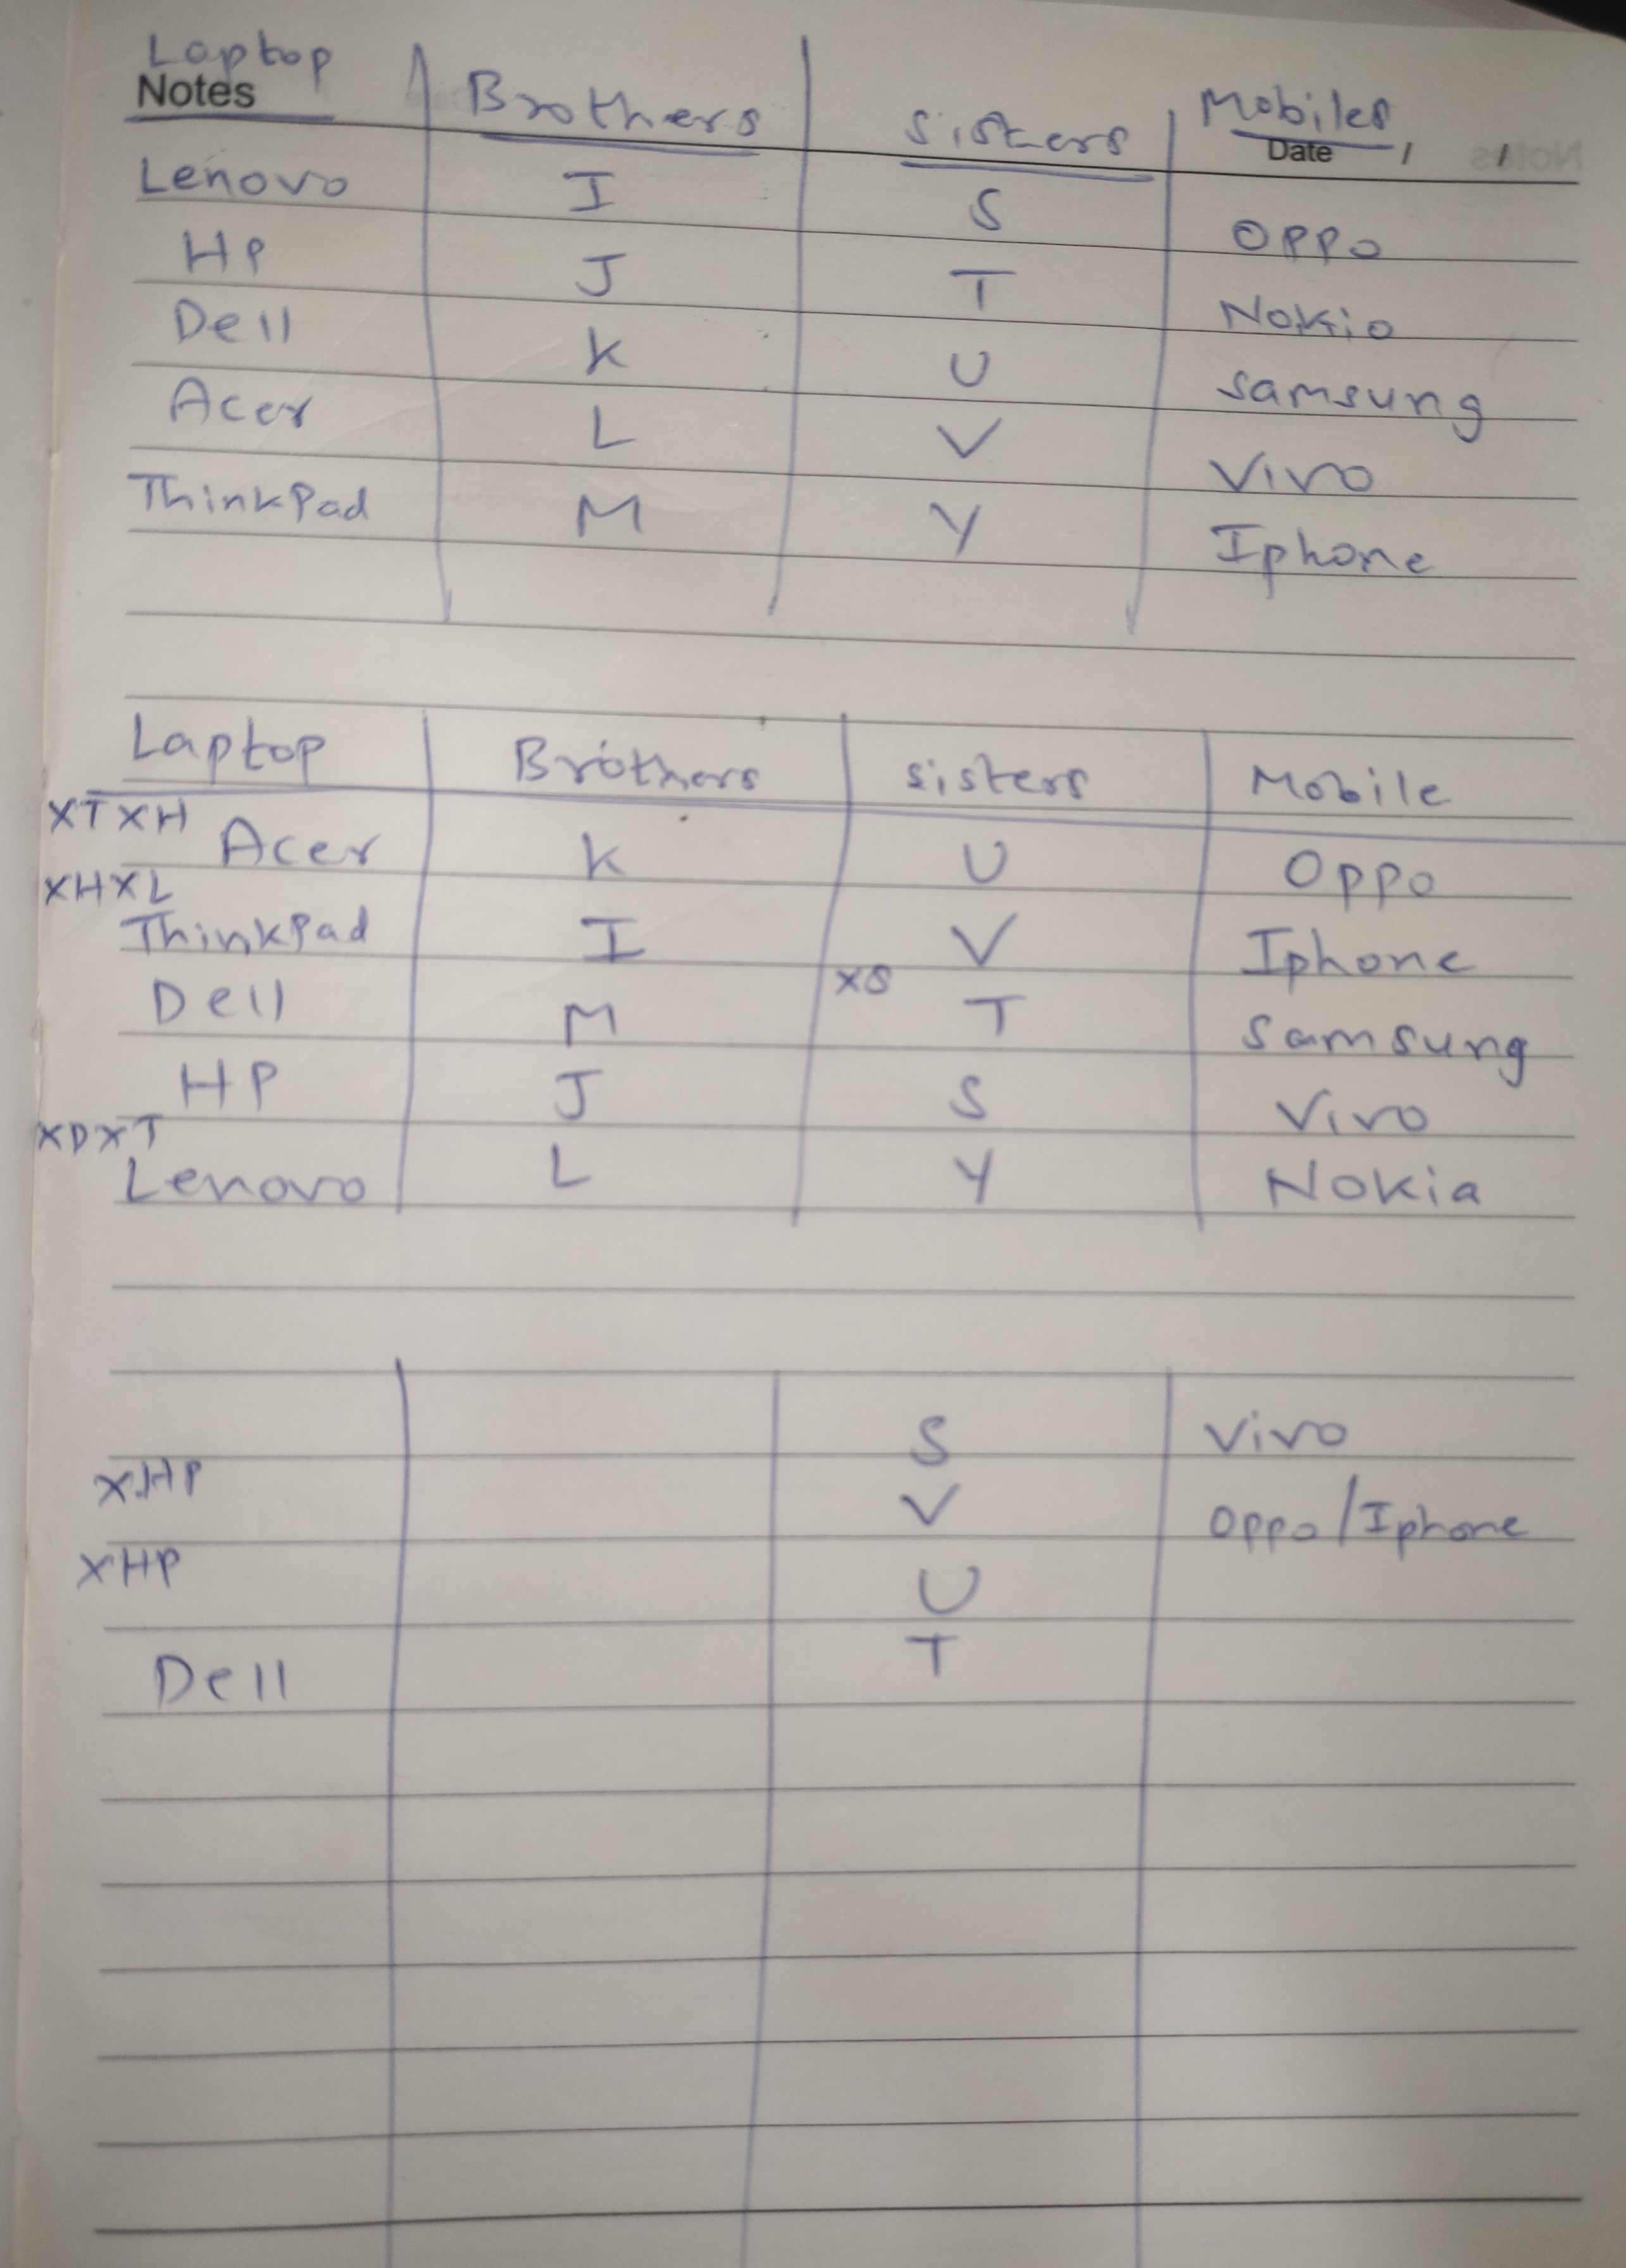 Laptop
Notes Brothers Sisters Mobiles
Date / /
Lenovo I S Oppo
HP J T Nokia
Dell K U Samsung
Acer L V Vivo
ThinkPad M Y Iphone
Laptop Brothers Sisters Mobile
XT XH Acer K U Oppo
XH XL
ThinkPad I V Iphone
Dell M XS T Samsung
HP J S Vivo
XD XT
Lenovo L Y Nokia
S Vivo
XHP V Oppo/Iphone
XHP U
Dell T